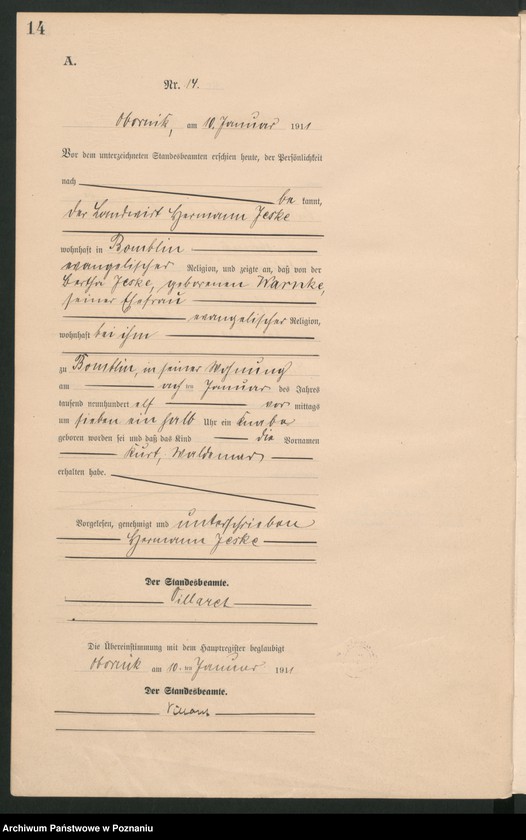 14
A.
Nr. 14.
Obornik, am 10. Januar 1911
Vor dem unterzeichneten Standesbeamten erschien heute, der Persönlichkeit
nach be kannt,
der Landwirt Hermann Jeske
wohnhaft in Bomblin
evangelischer Religion, und zeigte an, daß von der
Bertha Jeske, geborenen Warnke,
seiner Ehefrau
evangelischer Religion,
wohnhaft bei ihm
zu Bomblin, in seiner Wohnung
am acht ten Januar des Jahres
tausend neunhundert elf vor mittags
um sieben ein halb Uhr ein Knabe
geboren worden sei und daß das Kind die Vornamen
Kurt, Waldemar
erhalten habe.
Vorgelesen, genehmigt und unterschrieben
Hermann Jeske
Der Standesbeamte.
Villaret
Die Übereinstimmung mit dem Hauptregister beglaubigt
Obornik am 10. ten Januar 1911
Der Standesbeamte.
Villaret
Archiwum Państwowe w Poznaniu